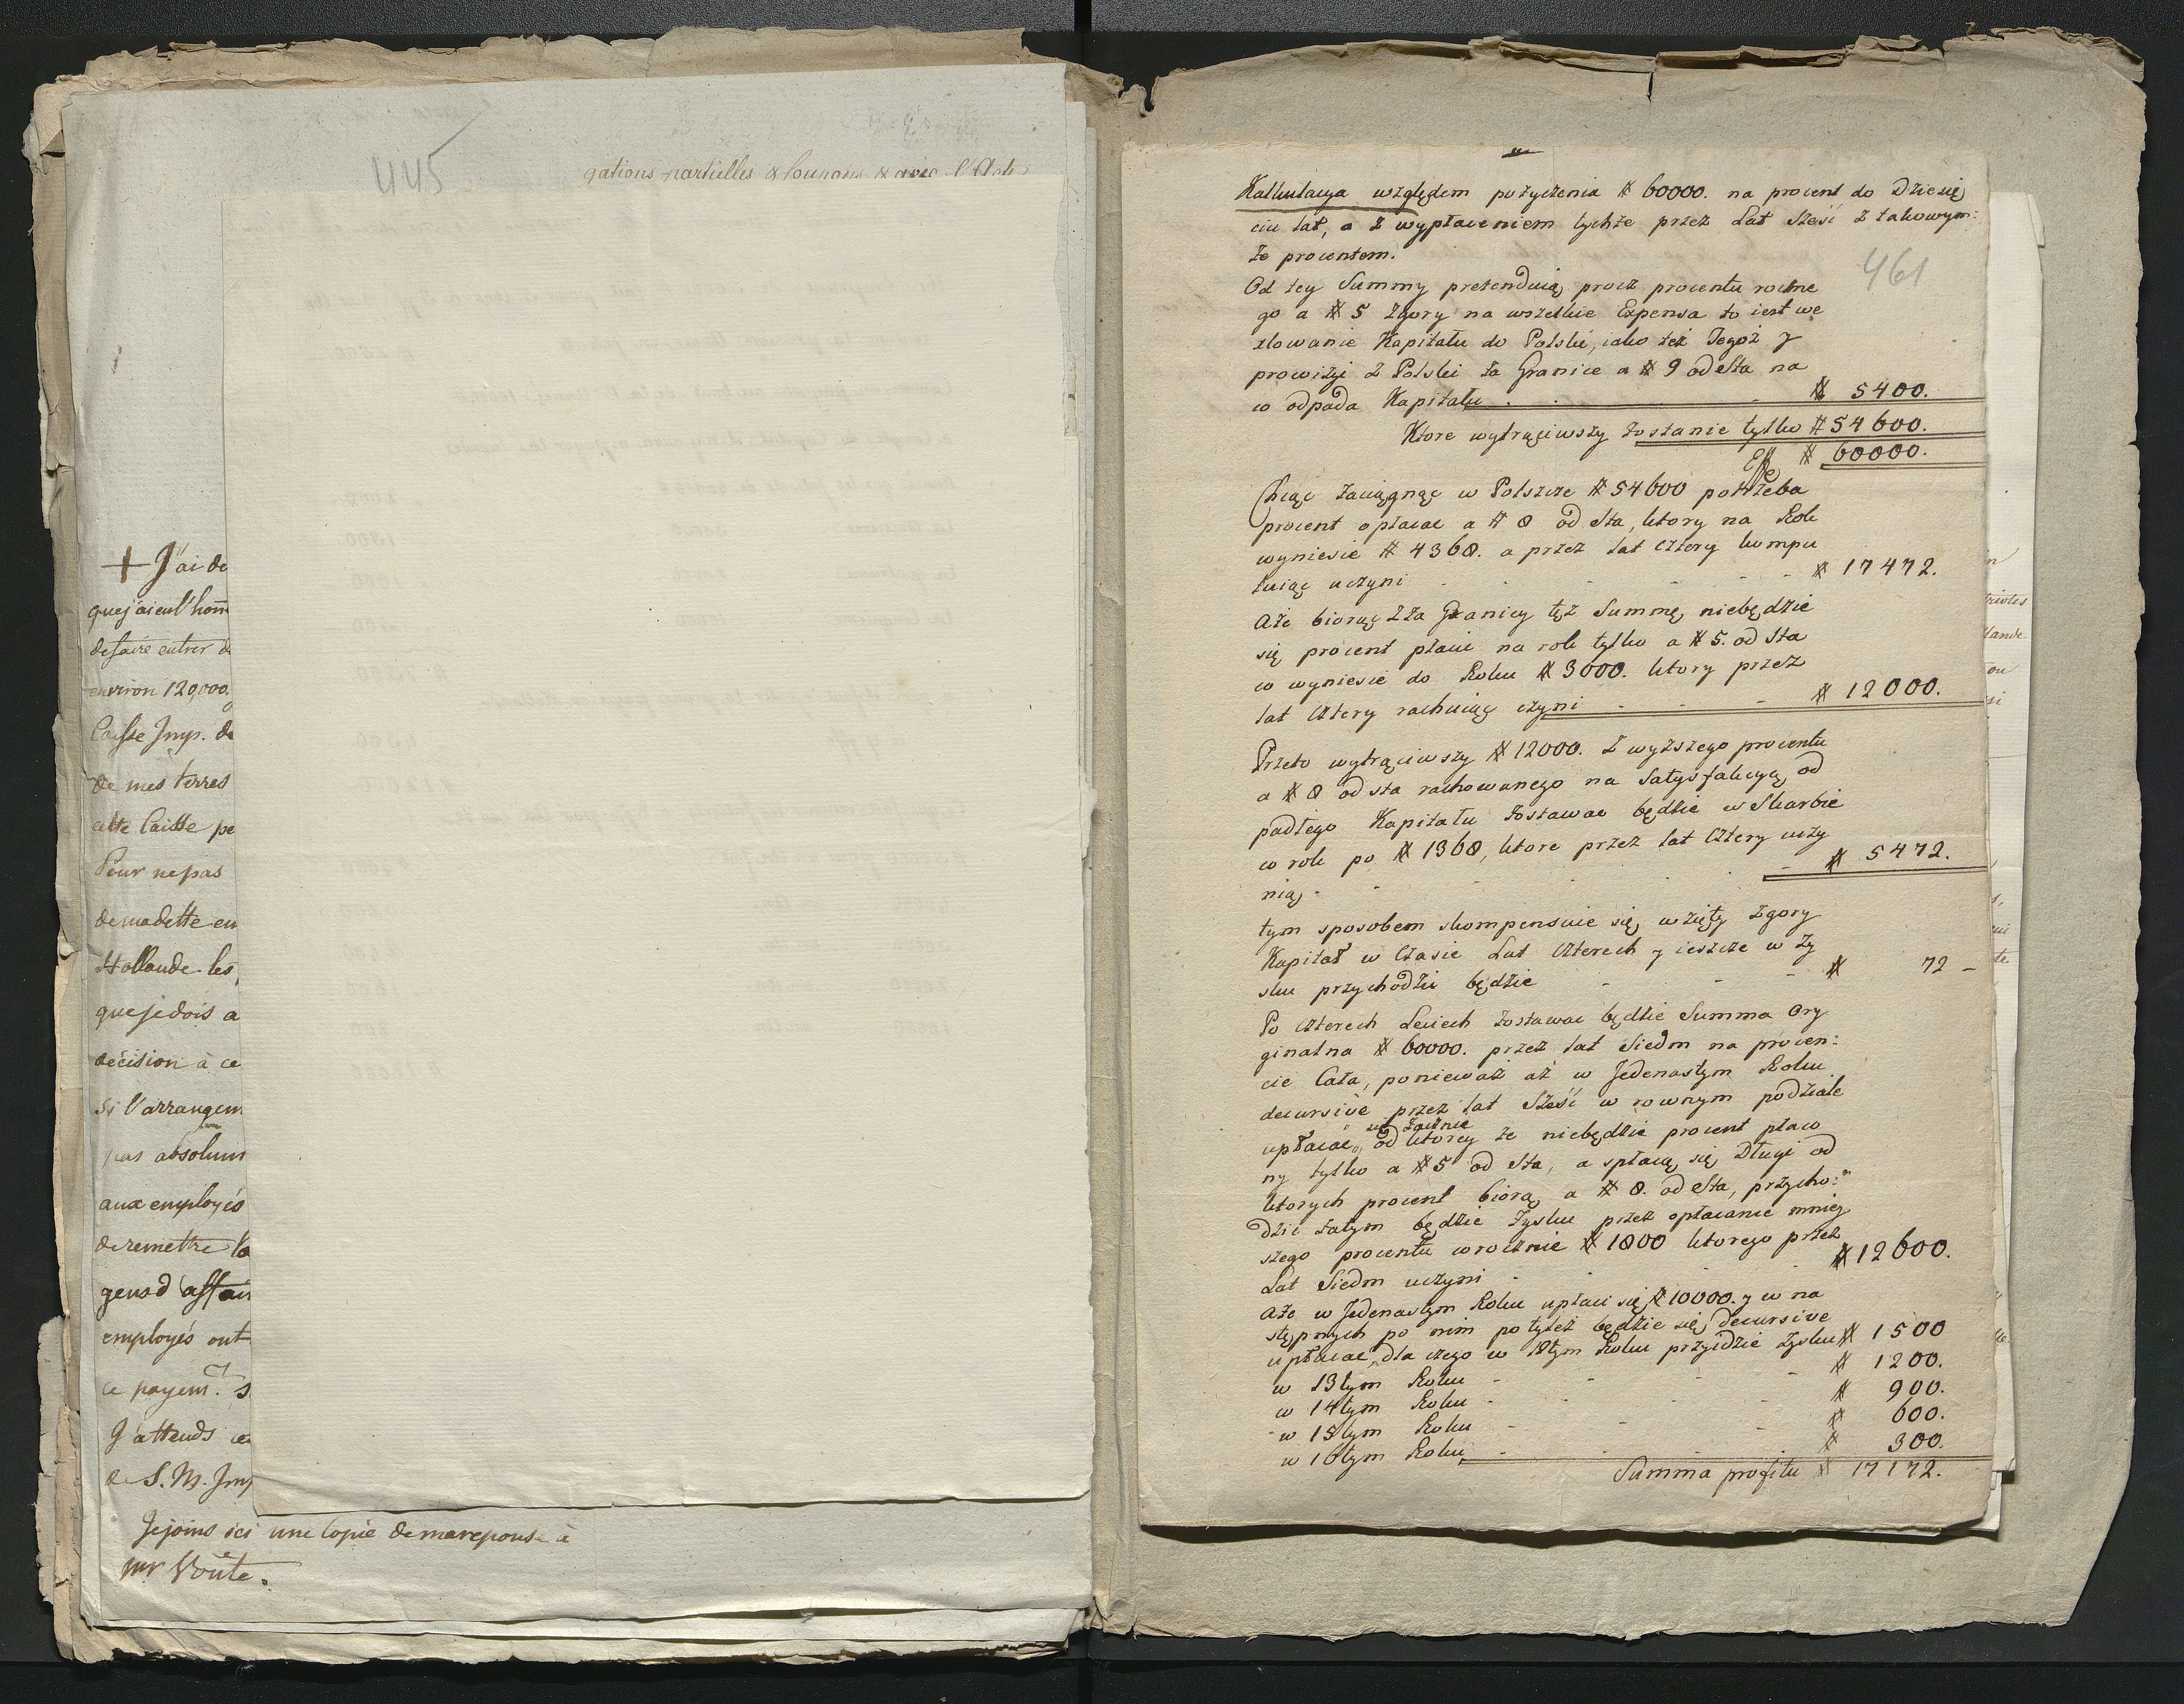 445
gations partielles & Coupons & avec l'Acte
+ J'ai de
que j'ai eu l'hon
de faire entrer d
environ 120,000
Caisse Imp. de
de mes terres
cette Caisse pe
Pour ne pas
de ma dette en
Hollande les
que je dois a
décision à ce
si l'arrangem
pas absolum
aux employés
de remettre la
gens d'affair
employés ont
ce payem.t s
J'attends ce
de S. M. Imp
Je joins ici une copie de ma reponse à
mr Voute.
Kalkulacya względem pożyczenia # 60000. na procent do Dziesię
ciu lat, a z wypłaceniem tychże przez Lat Sześć z takowym:
że procentem.
461
Od tey Summy pretenduią procz procentu roczne
go a # 5 zgory na wszelkie Expensa to iest we
xlowanie Kapitału do Polski, iako też Tegoż y
prowizyi z Polski za Granice a # 9 od Sta na
co odpada Kapitału . . # 5400.
Ktore wytrąciwszy zostanie tylko # 54600.
Eff # 60000.
Chcąc zaciągnąc w Polszcze # 54600 potrzeba
procent opłacac a # 8 od Sta, ktory na Rok
wyniesie # 4368. a przez lat cztery kompu
tuiąc uczyni - - - # 17472.
Aże biorąc z za Granicy tęż Summę niebędzie
się procent płacic na rok tylko a # 5. od Sta
co wyniesie do Roku # 3000. ktory przez
lat cztery rachuiąc czyni - - - # 12000.
Przeto wytrąciwszy # 12000. z wyższego procentu
a # 8 od sta rachowanego na Satysfakcyą od
padłego Kapitału zostawac będzie w Skarbie
co rok po # 1368, ktore przez lat cztery uczy
nią - - - # 5472.
tym sposobem skompensuie się wzięty zgory
Kapitał w Czasie Lat czterech y ieszcze w zy
sku przychodzic będzie - - - # 72 -
Po czterech Leciech zostawac będzie Summa Ory
ginalna # 60000. przez lat Siedm na procen:
cie Cała, ponieważ aż w Jedenastym Roku
decursive przez lat Sześć w rownym podziale
się zacznie
upłacac, od ktorey że niebędzie procent płaco
ny tylko a # 5 od Sta, a spłacą się Długi od
ktorych procent biorą a # 8. od Sta, przycho:
dzic zatym będzie zysku przez opłacanie mniey
szego procentu corocznie # 1800 ktorego przez
Lat Siedm uczyni - - - # 12600.
Aże w Jedenastym Roku upłaci się # 10000. y w na
stępnych po nim po tyleż będzie się decursive
upłacac, dla czego w 12tym Roku przyidzie zysku # 1500
w 13tym Roku - - - # 1200.
w 14tym Roku - - - # 900.
w 15tym Roku - - - # 600.
w 16tym Roku - - - # 300.
Summa profitu # 17172.